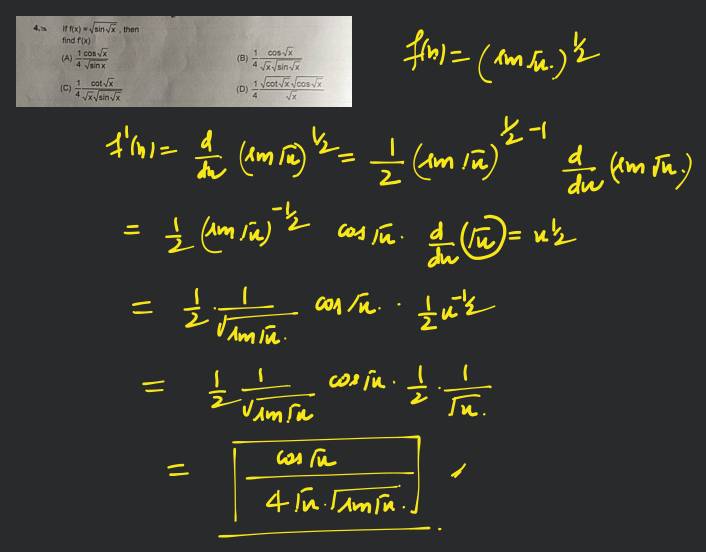 4. If f(x) = √sin√x , then
find f'(x)
(A) 1/4 cos√x/√sinx
(B) 1/4 cos√x/√x√sin√x
(C) 1/4 cot√x/√x√sin√x
(D) 1/4 √cot√x√cos√x/√x
f(x) = (sin√x.)^1/2
f'(x) = d/dx (sin√x)^1/2 = 1/2 (sin√x)^1/2 -1 d/dx (sin√x.)
= 1/2 (sin√x)^-1/2 cos√x. d/dx (√x) = x^1/2
= 1/2 . 1/√sin√x. cos√x. . 1/2 x^-1/2
= 1/2 . 1/√sin√x cos√x . 1/2 . 1/√x.
= cos√x/4√x.√sin√x.